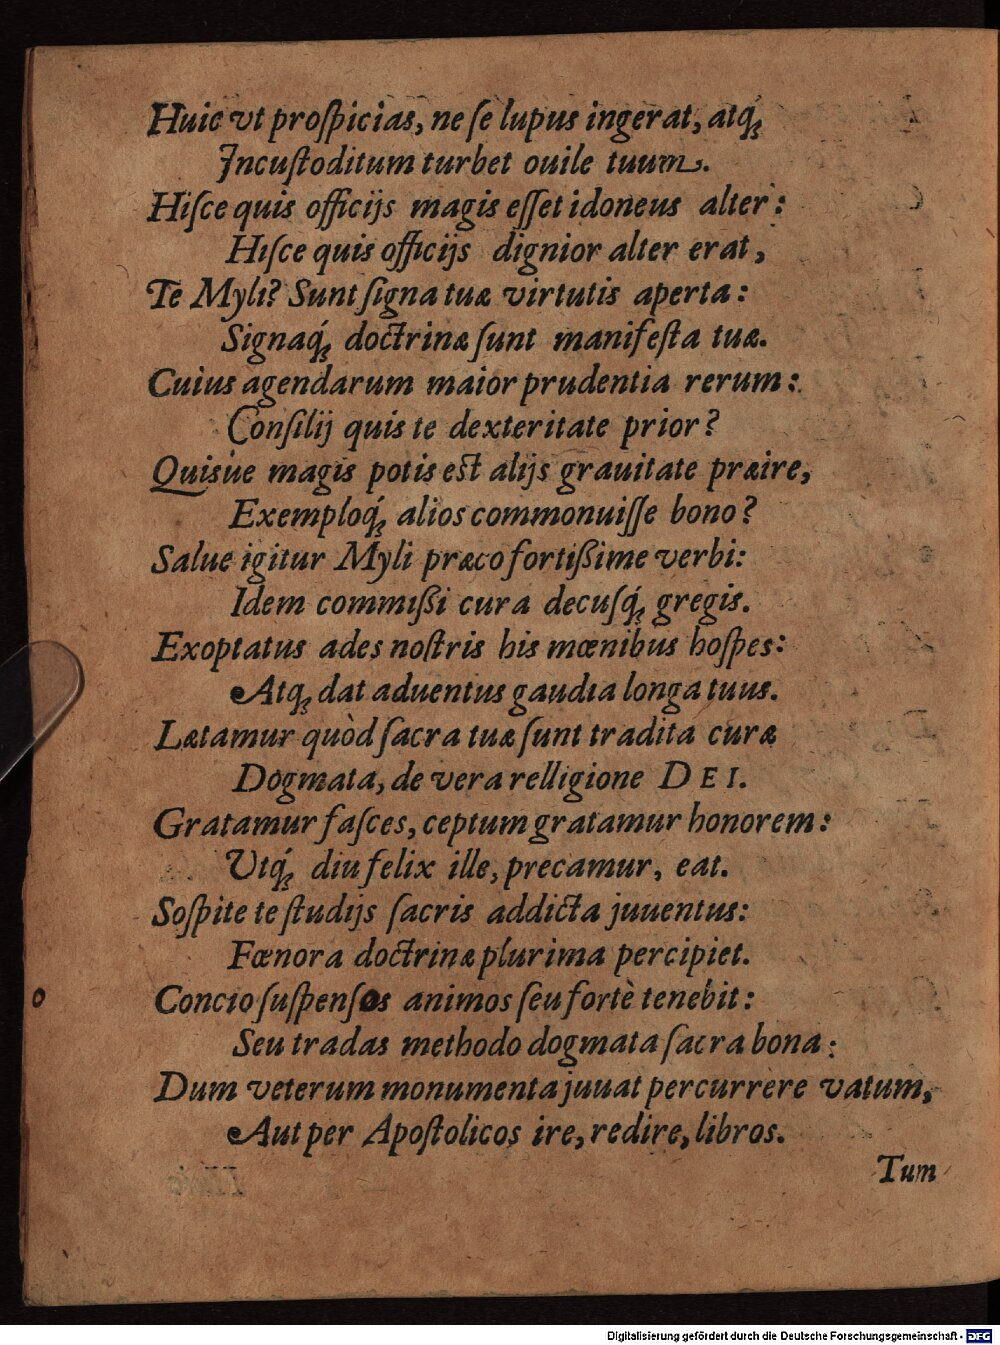 Huic vt proſpicias, ne ſe lupus ingerat, atq́;
Incuſtoditum turbet ouile tuum.
Hiſce quis officijs magis eſſet idoneus alter:
Hiſce quis officijs dignior alter erat,
Te Myli? Sunt ſigna tuæ virtutis aperta:
Signaq́; doctrinæ ſunt manifeſta tuæ.
Cuius agendarum maior prudentia rerum:
Conſilij quis te dexteritate prior?
Quisúe magis potis eſt alijs grauitate præire,
Exemploq́; alios commonuiſſe bono?
Salue igitur Myli præco fortißime verbi:
Idem commißi cura decuſq́; gregis.
Exoptatus ades noſtris his mœnibus hoſpes:
Atq; dat aduentus gaudia longa tuus.
Lætamur quòd ſacra tuæ ſunt tradita curæ
Dogmata, de vera relligione DEI.
Gratamur faſces, ceptum gratamur honorem:
Vtq́; diu felix ille, precamur, eat.
Soſpite te ſtudijs ſacris addicta juuentus:
Fœnora doctrinæ plurima percipiet.
Concio ſuſpenſos animos ſeu fortè tenebit:
Seu tradas methodo dogmata ſacra bona:
Dum veterum monumenta juuat percurrere vatum,
Aut per Apoſtolicos ire, redire, libros.
Tum
Digitalisierung gefördert durch die Deutsche Forschungsgemeinschaft - DFG